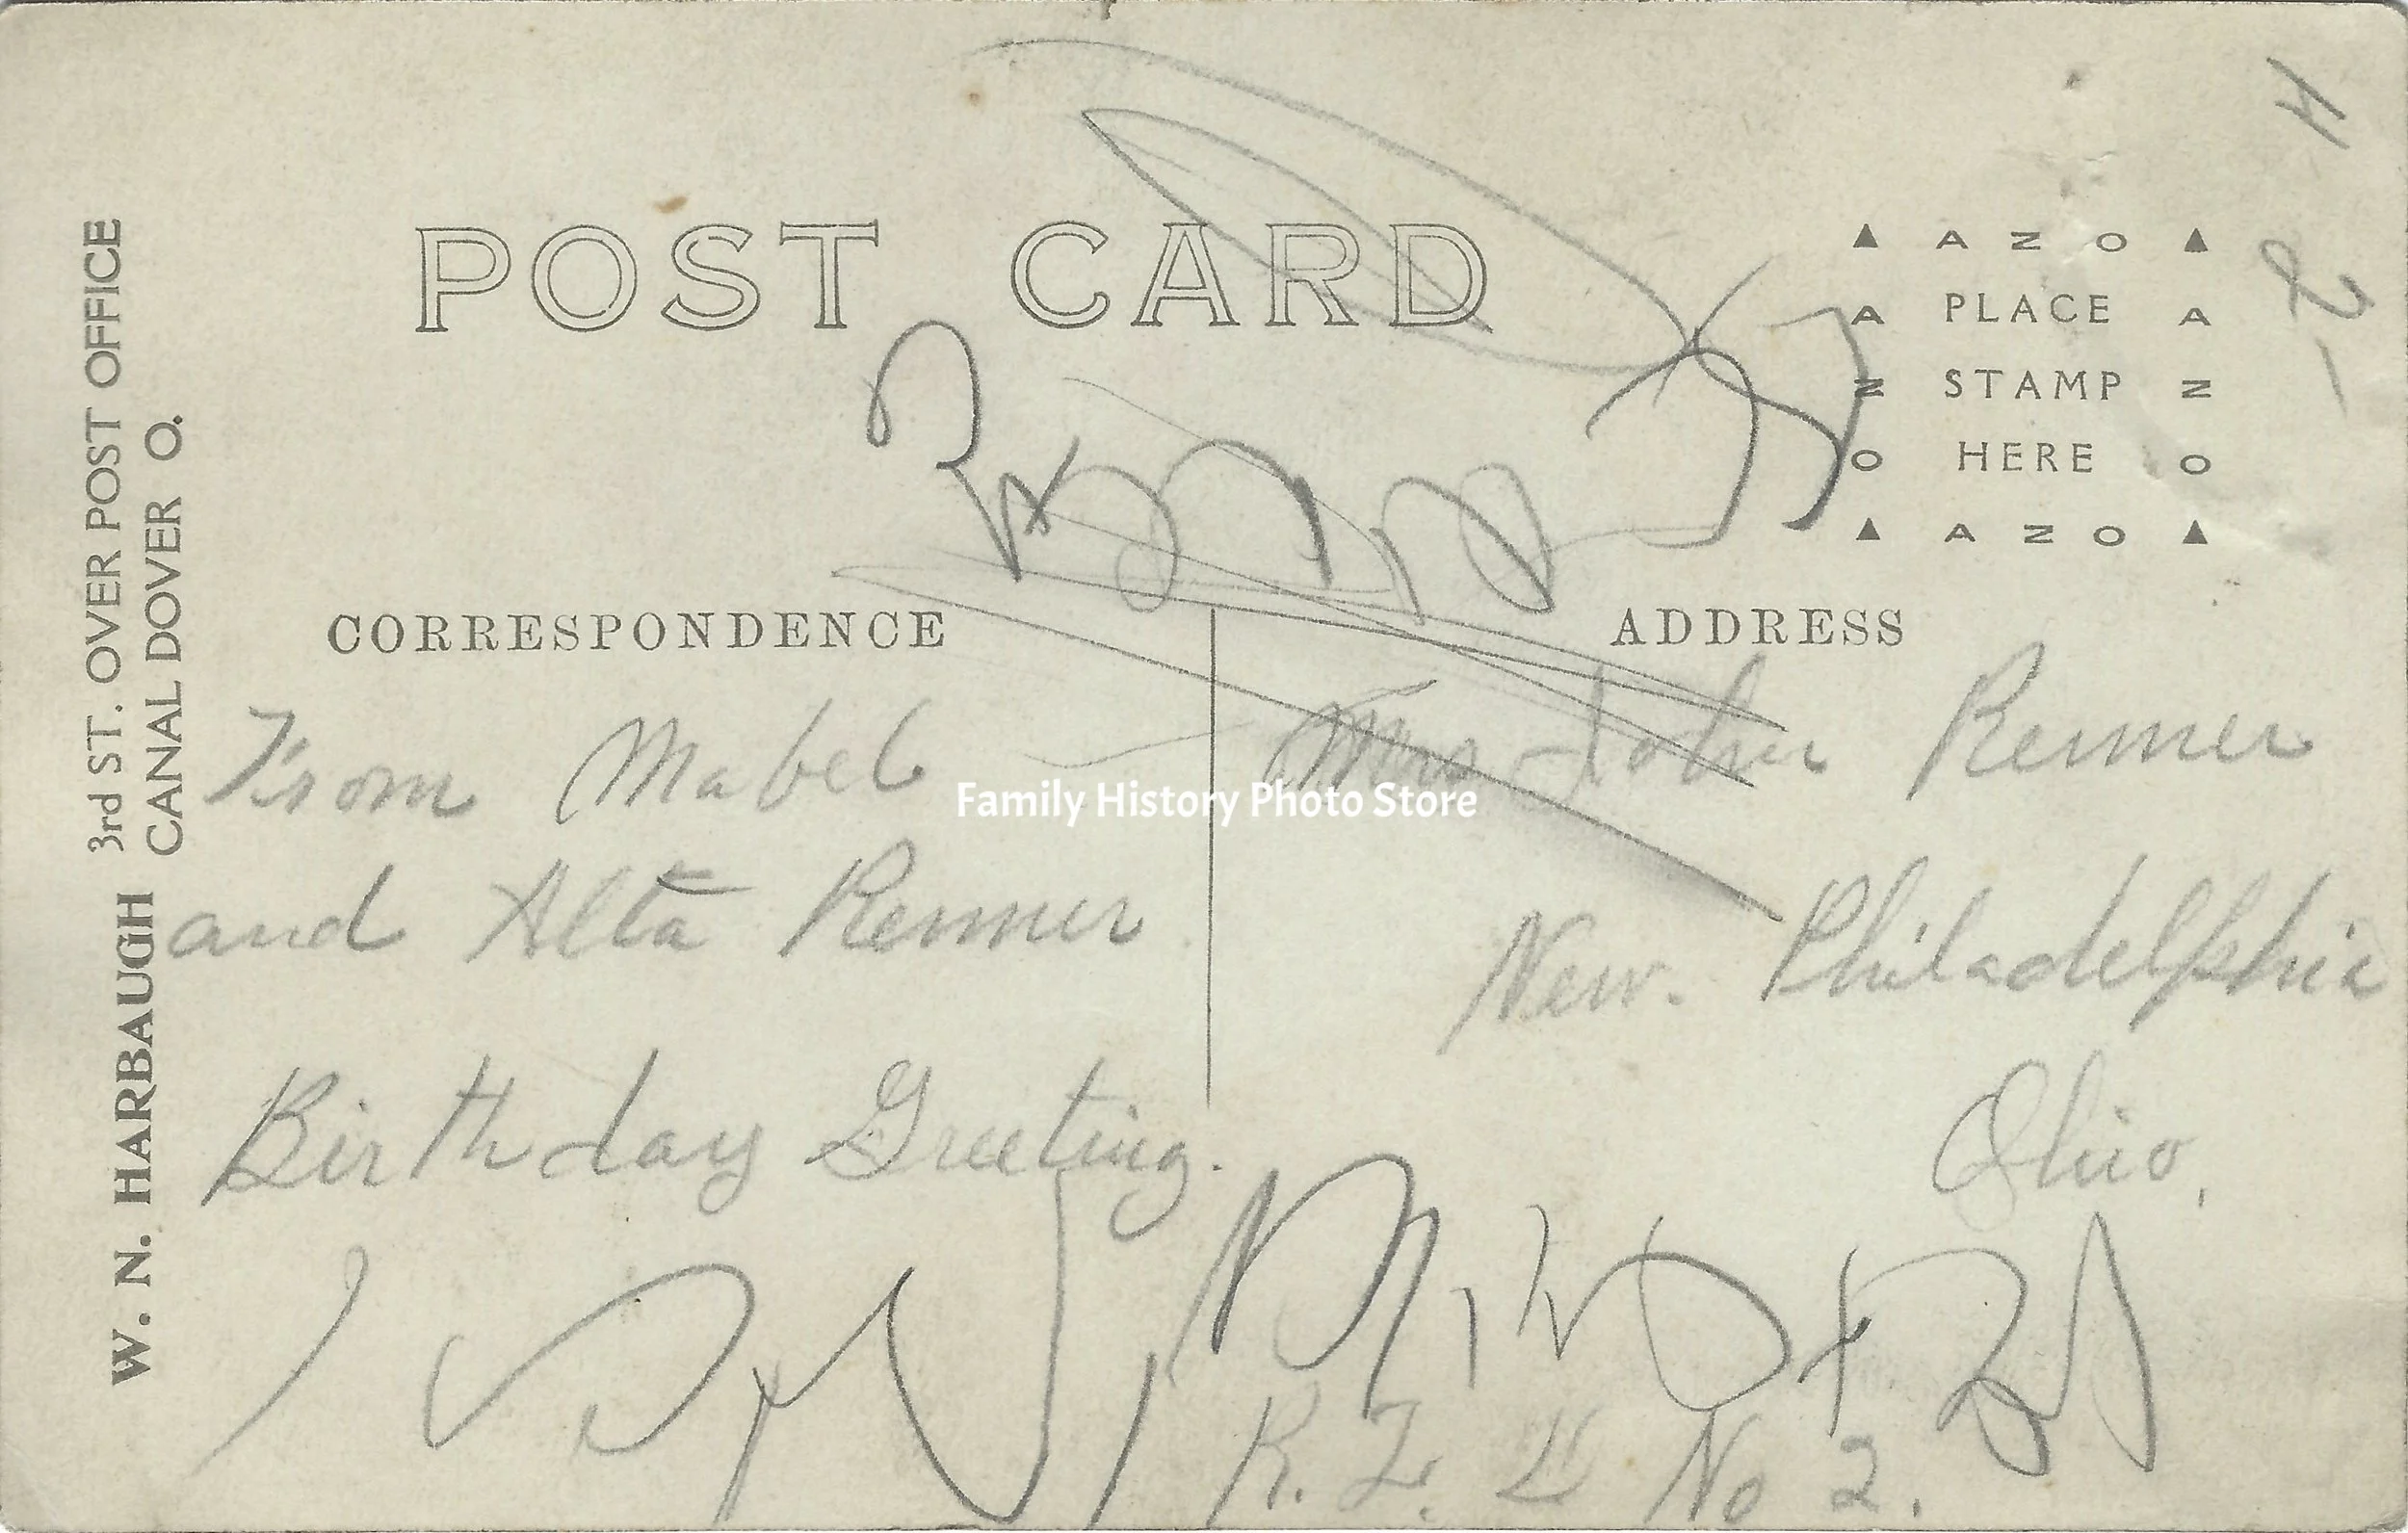 W. N. HARBAUGH 3rd ST. OVER POST OFFICE
CANAL DOVER O.
POST CARD
▲ A Z O ▲
A PLACE A
Z STAMP Z
O HERE O
▲ A Z O ▲
CORRESPONDENCE
ADDRESS
From Mabel
and Alta Renner
Birthday Greeting.
Mrs John Renner
New. Philadelphia
Ohio,
R. F. D No 2.
Family History Photo Store